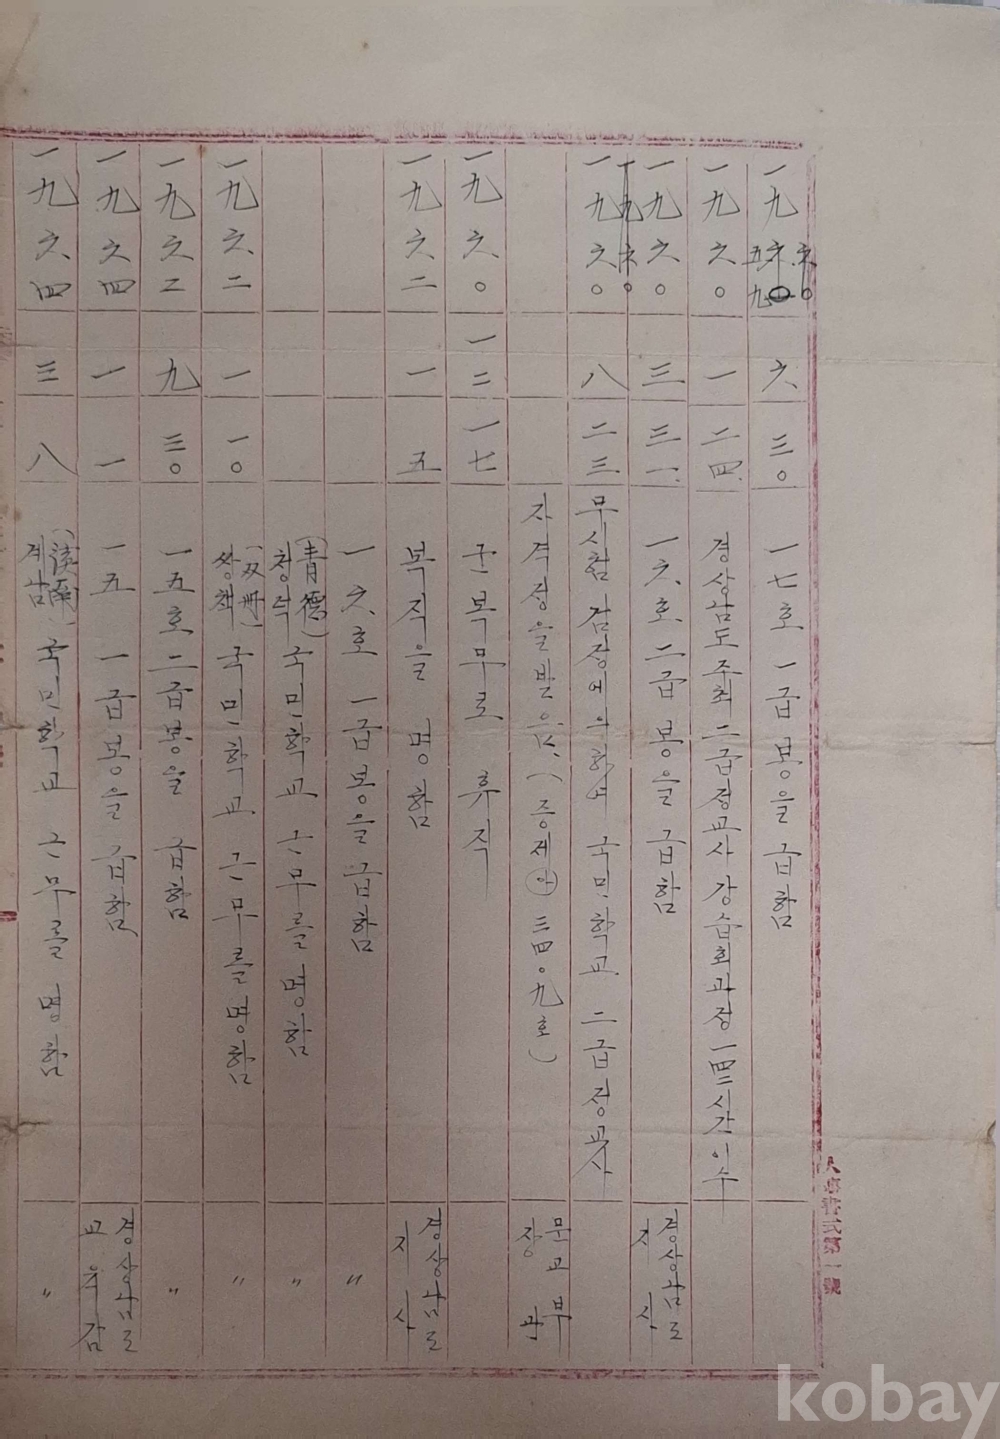 一九五九 六 三〇 一七호 一급봉을 급함
一九六〇 一 二四 경상남도 주최 二급정교사 강습회과정 一四二시간 이수
一九六〇 三 三一 一六호 二급봉을 급함 경상남도지사
一九六〇 八 二三 무시험 검정에 의하여 국민학교 二급정교사
자격증을 받음 문교부장관
一九六〇 一二 一七 군복무로 휴직
一九六二 一 五 복직을 명함 경상남도지사
一六호 一급봉을 급함 〃
청덕(青德)국민학교 근무를 명함 〃
一九六二 一 一〇 쌍책(双冊)국민학교 근무를 명함 〃
一九六二 九 三〇 一五호 二급봉을 급함 〃
一九六四 一 一 一五 一급봉을 급함 경상남도교육감
一九六四 三 八 국민학교 근무를 명함 〃
第一號
kobay